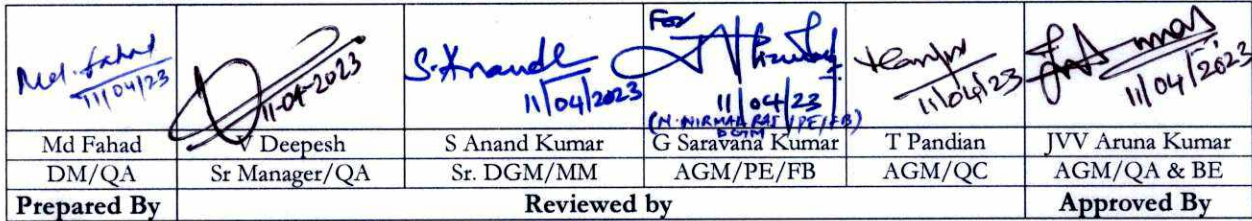 Md. Fahad
11/04/23
11-04-2023
S. Anand
11/04/2023
For
11/04/23
(N. NIRMAL RAJ / PE/FB)
DGM
11/04/23
11/04/2023
Md Fahad V Deepesh S Anand Kumar G Saravana Kumar T Pandian JVV Aruna Kumar
DM/QA Sr Manager/QA Sr. DGM/MM AGM/PE/FB AGM/QC AGM/QA & BE
Prepared By Reviewed by Approved By